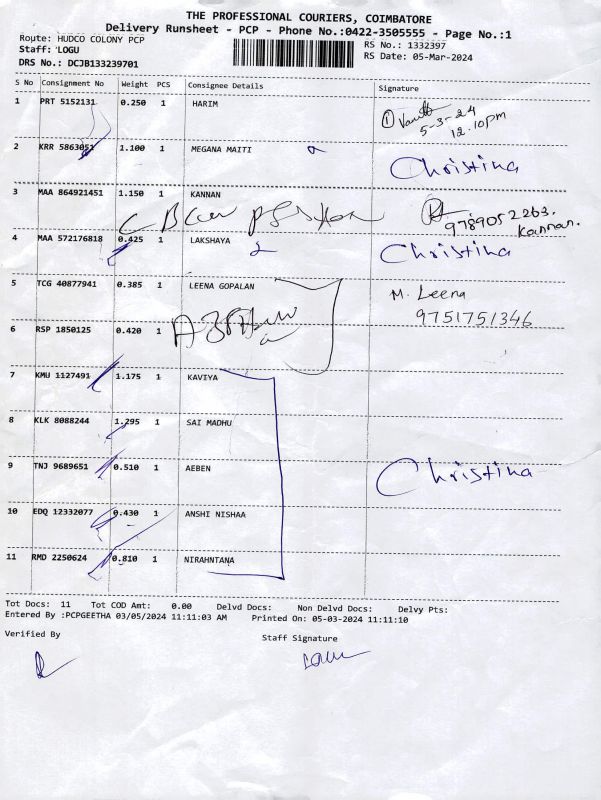 THE PROFESSIONAL COURIERS, COIMBATORE
Delivery Runsheet - PCP - Phone No.:0422-3505555 - Page No.:1
Route: HUDCO COLONY PCP
Staff: LOGU
DRS No.: DCJB133239701
RS No.: 1332397
RS Date: 05-Mar-2024
S No Consignment No Weight PCS Consignee Details Signature
1 PRT 5152131 0.250 1 HARIM
5-3-24
12.10pm
2 KRR 5863051 1.100 1 MEGANA MAITI Christina
3 MAA 864921451 1.150 1 KANNAN
9789052263.
Kannan.
4 MAA 572176818 0.425 1 LAKSHAYA Christina
5 TCG 40877941 0.385 1 LEENA GOPALAN M. Leena
9751751346
6 RSP 1850125 0.420 1
7 KMU 1127491 1.175 1 KAVIYA
8 KLK 8088244 1.295 1 SAI MADHU
9 TNJ 9689651 0.510 1 AEBEN Christina
10 EDQ 12332077 0.430 1 ANSHI NISHAA
11 RMD 2250624 0.810 1 NIRAHNTANA
Tot Docs: 11 Tot COD Amt: 0.00 Delvd Docs: Non Delvd Docs: Delvy Pts:
Entered By :PCPGEETHA 03/05/2024 11:11:03 AM Printed On: 05-03-2024 11:11:10
Verified By Staff Signature